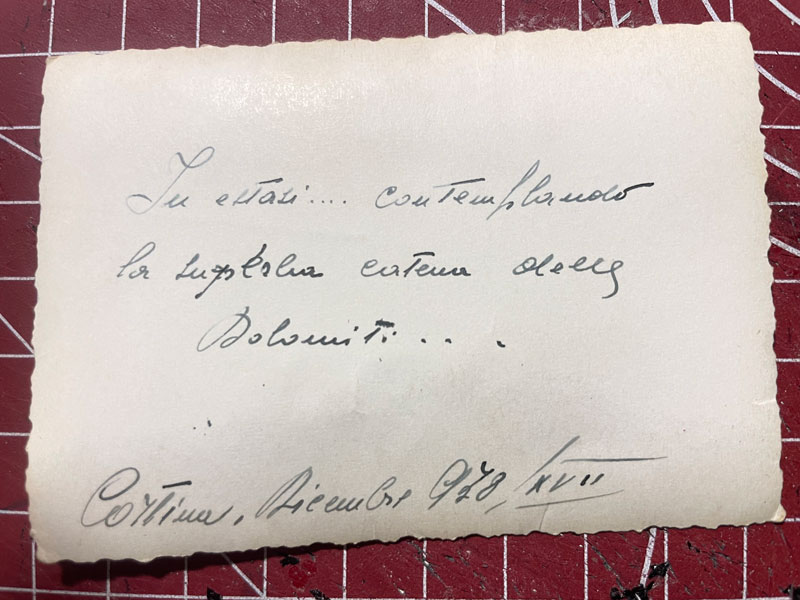 In estasi.... contemplando
la superba catena delle
Dolomiti...
Cortina, Dicembre 938/XVII